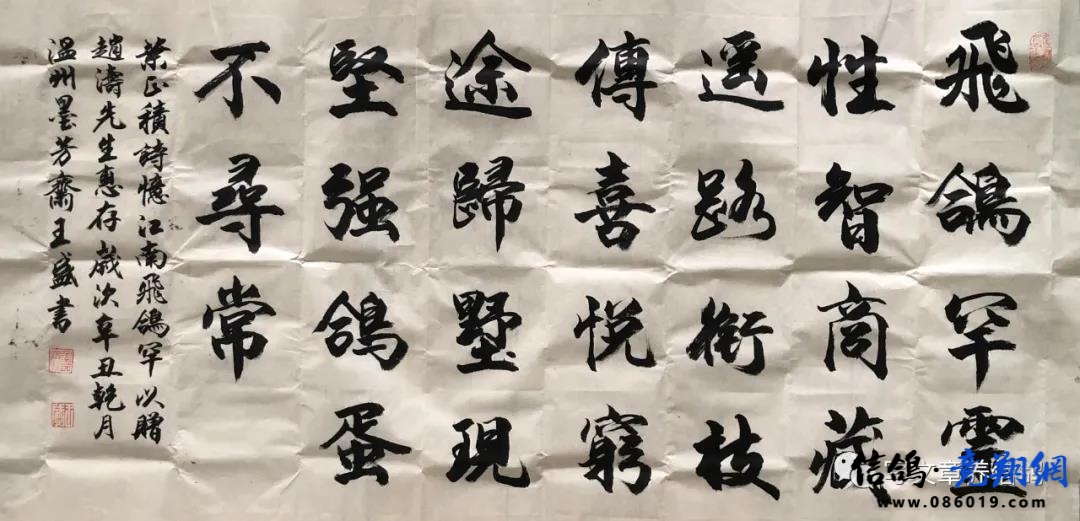 飛鴿罕靈
性智商藏
遥路銜枝
傳喜悦窮
途歸墅現
堅强鴿蛋
不尋常
葉正積詩憶江南飛鴿罕以贈
趙濤先生惠存歲次辛丑乾月
温州墨芳齋王盛書
信鸽·竞翔網
www.086019.com